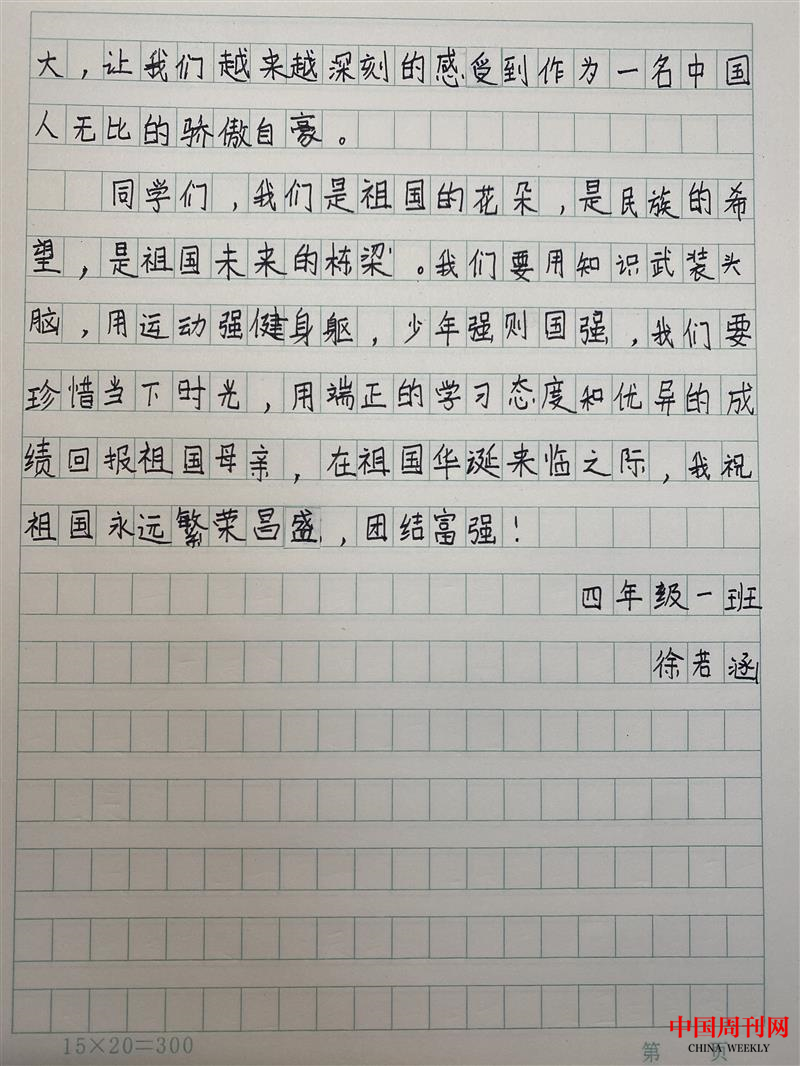 大，让我们越来越深刻的感受到作为一名中国
人无比的骄傲自豪。
同学们，我们是祖国的花朵，是民族的希
望，是祖国未来的栋梁。我们要用知识武装头
脑，用运动强健身躯，少年强则国强，我们要
珍惜当下时光，用端正的学习态度和优异的成
绩回报祖国母亲，在祖国华诞来临之际，我祝
祖国永远繁荣昌盛，团结富强！
四年级一班
徐若涵
15×20=300
第 页
中国周刊网
CHINA WEEKLY